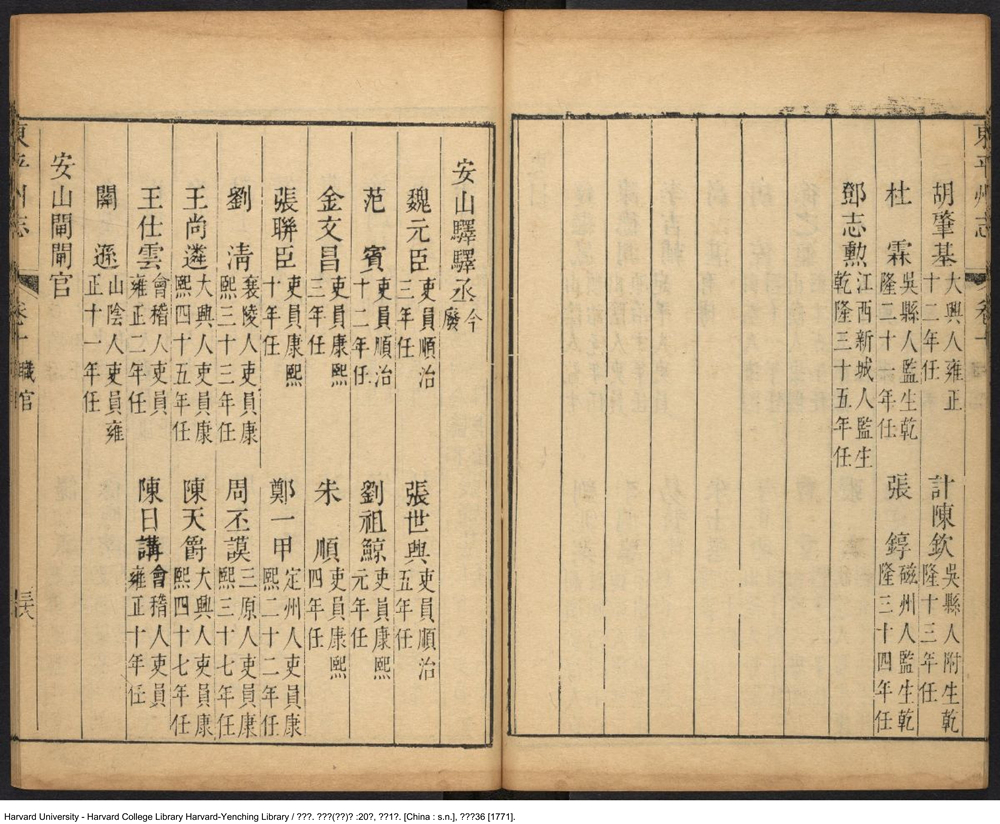 東平州志
胡肇基大興人雍正十二年任
計陳欽吳縣人附生乾隆十三年任
杜霖吳縣人監生乾隆二十六年任
張錞磁州人監生乾隆三十四年任
鄧志勲江西新城人監生乾隆三十五年任
安山驛驛丞今廢
魏元臣吏員順治三年任
張世興吏員順治五年任
范賓吏員順治十二年任
劉祖鯨吏員康熙元年任
金文昌吏員康熙三年任
朱順吏員康熙四年任
張聯臣吏員康熙十年任
鄭一甲定州人吏員康熙二十二年任
劉清襄陵人吏員康熙三十三年任
周丕謨三原人吏員康熙三十七年任
王尚遴大興人吏員康熙四十五年任
陳天爵大興人吏員康熙四十七年任
王仕雲會稽人吏員雍正二年任
陳日講會稽人吏員雍正十年任
關遜山陰人吏員雍正十一年任
安山閘閘官
東平州志 卷十 職官
Harvard University - Harvard College Library Harvard-Yenching Library / ???. ???(??)? :20?, ??1?. [China : s.n.], ???36 [1771].